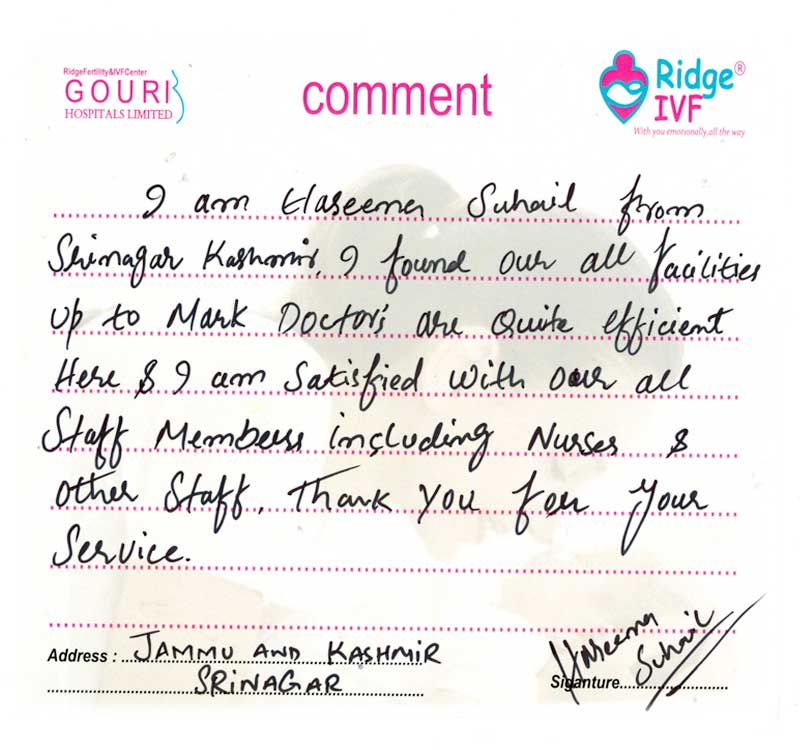 RidgeFertility&IVFCenter
GOURI
HOSPITALS LIMITED
comment
Ridge®
IVF
With you emotionally, all the way
I am Haseema Suhail from
Srinagar Kashmir, I found our all facilities
up to Mark Doctor's are Quite efficient
Here & I am Satisfied with our all
Staff Members including Nurses &
other Staff. Thank you for Your
Service.
Address : JAMMU AND KASHMIR
SRINAGAR
Haseema
Suhail
Siganture